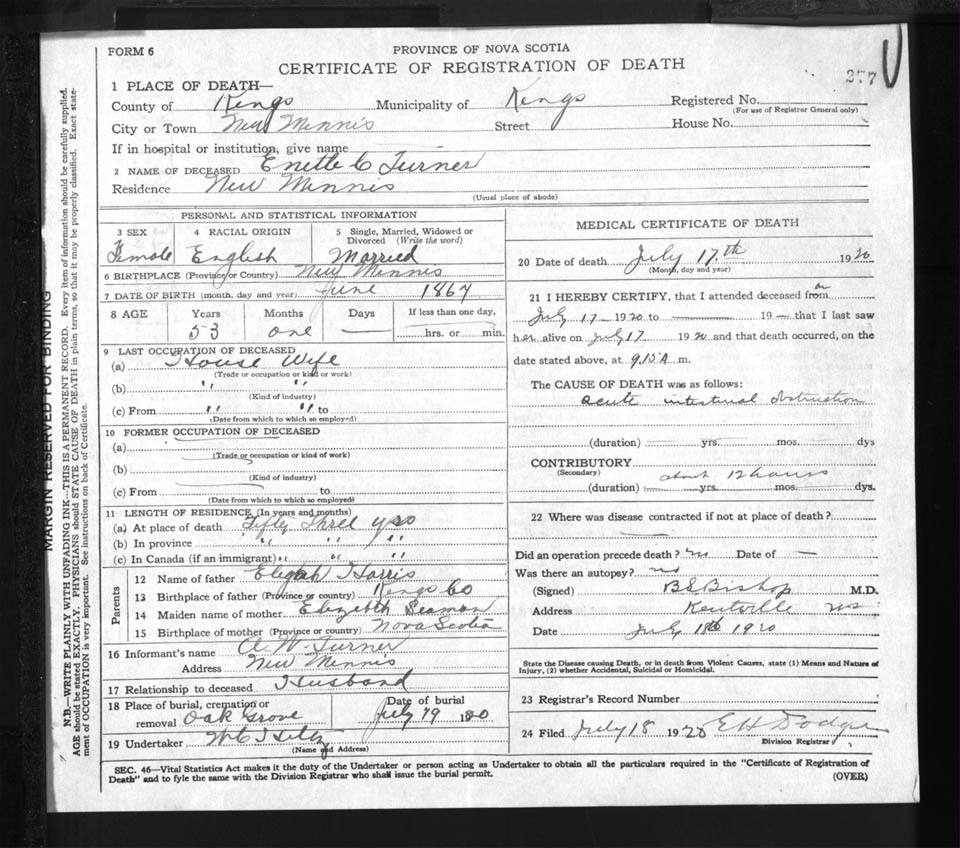 FORM 6
PROVINCE OF NOVA SCOTIA
CERTIFICATE OF REGISTRATION OF DEATH
277
1 PLACE OF DEATH—
County of Kings Municipality of Kings Registered No.
(For use of Registrar General only)
City or Town New Minnis Street House No.
If in hospital or institution, give name
2 NAME OF DECEASED Enette C Turner
Residence New Minnis
(Usual place of abode)
PERSONAL AND STATISTICAL INFORMATION
3 SEX 4 RACIAL ORIGIN 5 Single, Married, Widowed or
Divorced (Write the word)
Female English Married
6 BIRTHPLACE (Province or Country) New Minnis
7 DATE OF BIRTH (month, day and year) June 1867
8 AGE Years Months Days If less than one day,
53 one — hrs. or min.
9 LAST OCCUPATION OF DECEASED
(a) House Wife
(Trade or occupation or kind or work)
(b) " "
(Kind of industry)
(c) From " " to
(Date from which to which so employed)
10 FORMER OCCUPATION OF DECEASED
(a)
(Trade or occupation or kind of work)
(b)
(Kind of industry)
(c) From to
(Date from which to which so employed)
11 LENGTH OF RESIDENCE (In years and months)
(a) At place of death Fifty Three yrs
(b) In province " " "
(c) In Canada (if an immigrant) " " "
Parents
12 Name of father Elijah Harris
13 Birthplace of father (Province or country) Kings Co
14 Maiden name of mother Elizebth Seaman
15 Birthplace of mother (Province or country) Nova Scotia
16 Informant's name A. W. Turner
Address New Minnis
17 Relationship to deceased Husband
18 Place of burial, cremation or removal Oak Grove
Date of burial July 19 1920
19 Undertaker
(Name and Address)
MEDICAL CERTIFICATE OF DEATH
20 Date of death July 17th 1920
(Month, day and year)
21 I HEREBY CERTIFY, that I attended deceased from on
July 17 – 1920 to — 19 — that I last saw
her alive on July 17 1920 and that death occurred, on the
date stated above, at 9.15 A m.
The CAUSE OF DEATH was as follows:
acute intestinal obstruction
(duration) yrs. mos. dys
CONTRIBUTORY
(Secondary) about 12 hours
(duration) yrs. mos. dys.
22 Where was disease contracted if not at place of death?
Did an operation precede death? no Date of —
Was there an autopsy? no
(Signed) B S Bishop M.D.
Address Kentville NS
Date July 18th 1920
State the Disease causing Death, or in death from Violent Causes, state (1) Means and Nature of
Injury, (2) whether Accidental, Suicidal or Homicidal.
23 Registrar's Record Number
24 Filed July 18 1920 E H Dodge
Division Registrar
SEC. 46—Vital Statistics Act makes it the duty of the Undertaker or person acting as Undertaker to obtain all the particulars required in the "Certificate of Registration of
Death" and to fyle the same with the Division Registrar who shall issue the burial permit.
(OVER)
MARGIN RESERVED FOR BINDING
N.B.—WRITE PLAINLY WITH UNFADING INK—THIS IS A PERMANENT RECORD. Every item of information should be carefully supplied.
AGE should be stated EXACTLY. PHYSICIANS should STATE CAUSE OF DEATH in plain terms, so that it may be properly classified. Exact state-
ment of OCCUPATION is very important. See instructions on back of Certificate.